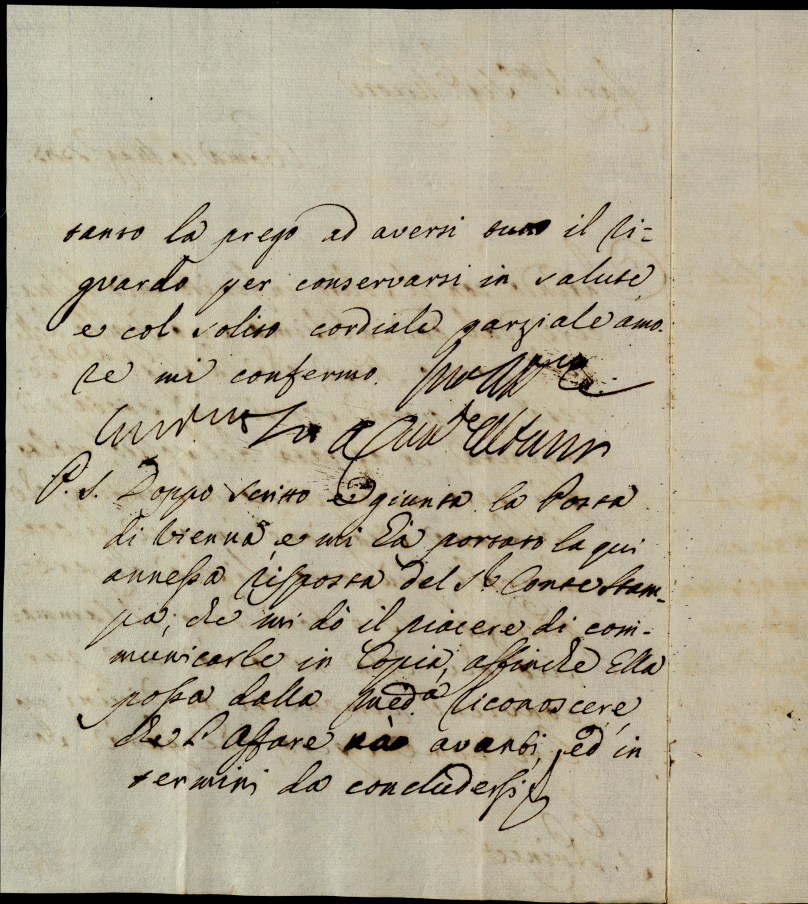 tanto la prego ad aversi tutto il ri=
guardo per conservarsi in salute
e col solito cordiale parziale amo.
re mi confermo.
P. S. Doppo scritto è giunta la Posta
di Vienna, e mi hà portato la qui
annessa risposta del Sr. Conte Stam-
pa, che mi dò il piacere di com-
municarle in Copia, affinche Ella
possa dalla meda. riconoscere,
che l'affare và avanti, ed in
termini da concludersi